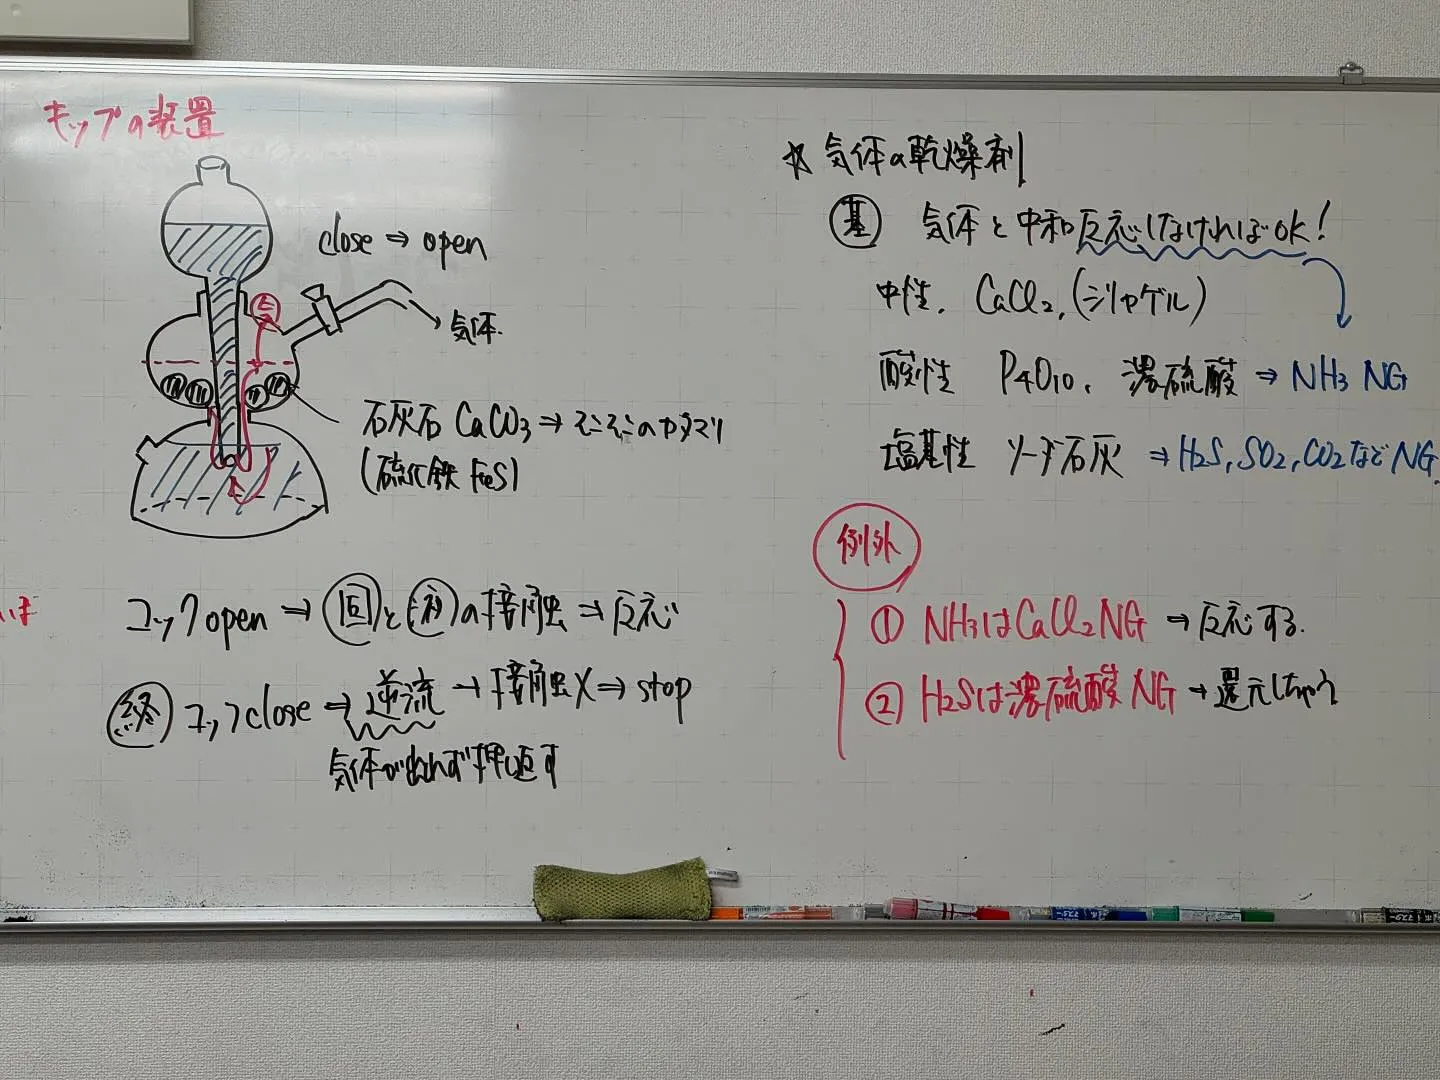 キップの装置
close ⇒ open
気体
石灰石 CaCO3 ⇒ そこそこのカタマリ
(硫化鉄 FeS)
コックopen ⇒ 固と液の接触 ⇒ 反応
終 コックclose ⇒ 逆流 → 接触X ⇒ stop
気体が出れず押し返す
☆ 気体の乾燥剤
基 気体と中和反応しなければOK!
中性. CaCl2, (シリカゲル)
酸性 P4O10, 濃硫酸 ⇒ NH3 NG
塩基性 ソーダ石灰 ⇒ H2S, SO2, CO2などNG.
例外
① NH3はCaCl2NG → 反応する.
② H2Sは濃硫酸NG → 還元しちゃう